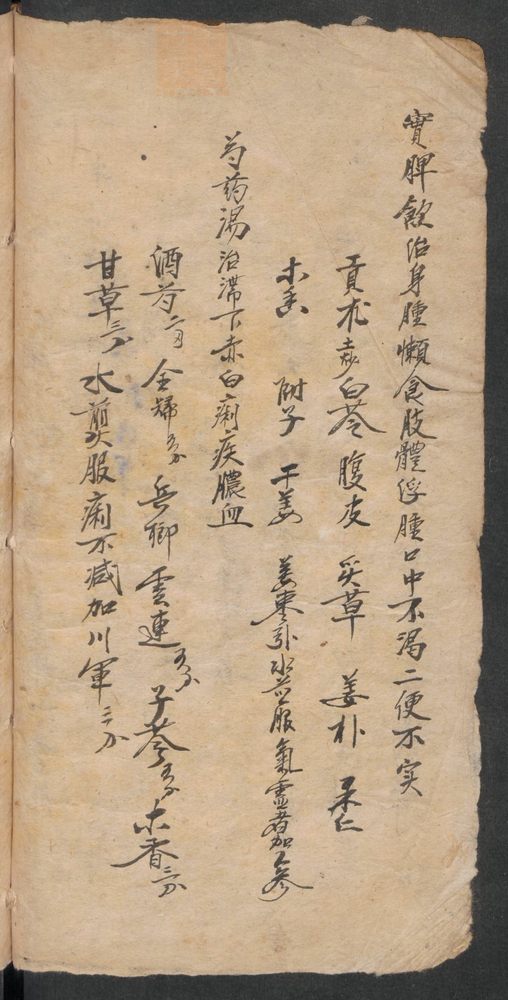 實脾飲治身腫懶食肢體浮腫口中不渴二便不实
貢朮 赤白苓 腹皮 炙草 姜朴 果仁
木香 附子 干姜 姜棗引水煎服氣虛者加人參
芍药湯治滯下赤白痢疾膿血
酒芍二両 全歸五分 兵榔 雲連五分 子苓五分 木香三分
甘草三分 水煎服痢不减加川軍三分